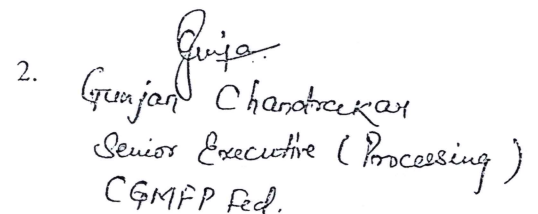 2.
Gunjan Chandrakar
Senior Executive (Processing)
CGMFP Fed.